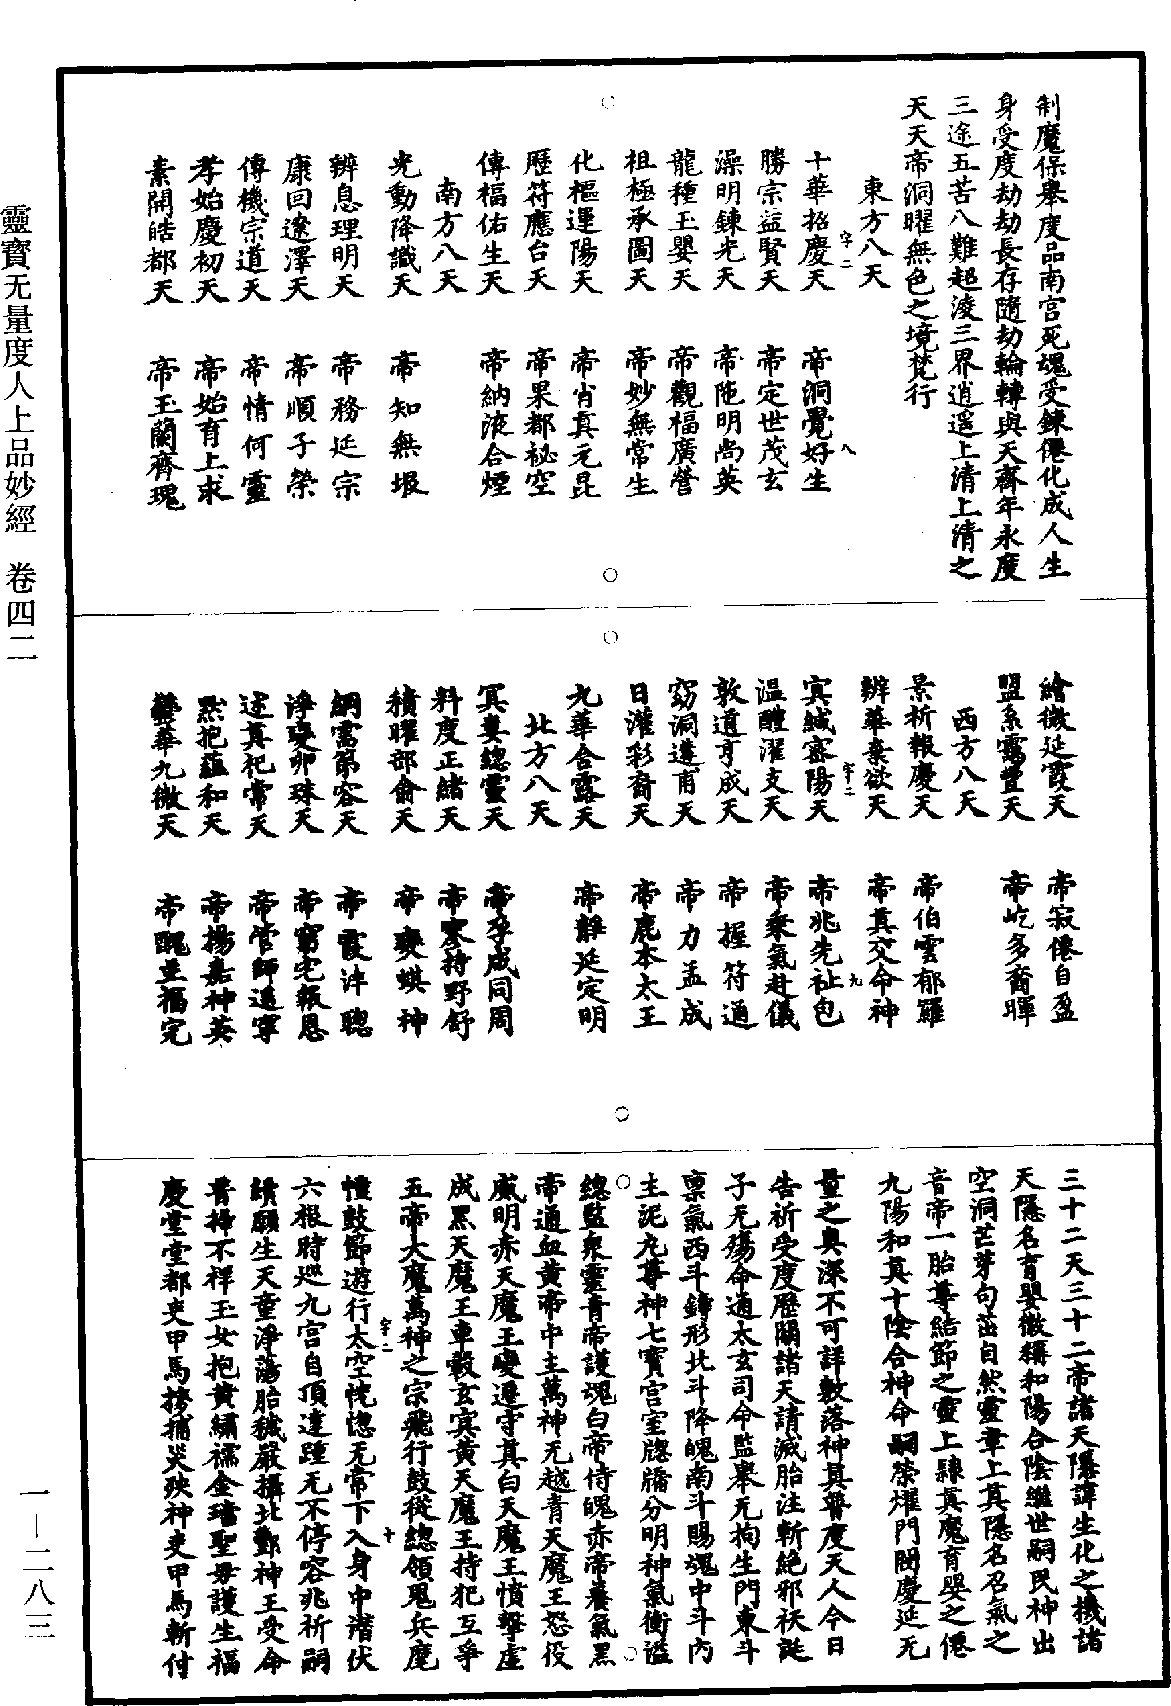 制魔保舉度品南宮死魂受鍊僊化成人生
身受度劫劫長存隨劫輪轉與天齊年永度
三途五苦八難超淩三界逍遥上清上清之
天天帝洞曜無色之境梵行
東方八天
十華招慶天 帝洞覺好生
字二 八
勝宗益賢天 帝定世茂玄
澡明鍊光天 帝陁明尚英
龍種玉嬰天 帝觀福廣營
祖極承圖天 帝妙無常生
化樞運陽天 帝肖真元昆
歷符應台天 帝果都祕空
傳福佑生天 帝納液合煙
南方八天
光動降識天 帝知無垠
辨息理明天 帝務延宗
康回遼澤天 帝順子榮
傳機宗道天 帝情何靈
孝始慶初天 帝始育上求
素開皓都天 帝玉蘭齊瑰
繪微延霞天 帝寂僊自盈
盟系靄豐天 帝屹多裔暉
西方八天
景祈報慶天 帝伯雲郁羅
辨華棄欲天 帝真交命神
字二 九
寘緘審陽天 帝兆先祉包
温醴濯支天 帝乘氣赴儀
敦道亨成天 帝握符通
窈洞遘甫天 帝力孟成
日灌彩裔天 帝鹿本太王
九華合露天 帝靜延定明
北方八天
冥婁總靈天 帝孚成同周
料度正緒天 帝寒持野舒
積曜部龠天 帝奭蜞神
網需第容天 帝霞沣聰
淨斐卯珠天 帝窮宅報恩
述真祀常天 帝管師遥寧
煕抱蘊和天 帝揚嘉神英
鬱華九微天 帝醜韭福完
三十二天三十二帝諸天隱諱生化之機諸
天隱名育嬰微稱和陽合陰繼世嗣民神出
空洞芒芽句茁自然靈章上真隱名召氣之
音帝一胎尊結節之靈上隸真魔育嬰之僊
九陽和真十陰合神命嗣榮燿門閥慶延无
量之奥深不可詳敷落神真普度天人今日
告祈受度歷關諸天請滅胎注斬絕邪袄誕
子无殤命通太玄司命監舉无拘生門東斗
稟氣西斗鑄形北斗降魄南斗賜魂中斗內
主泥丸尊神七寶宮室牕牗分明神氣衡溢
總監衆靈青帝護魂白帝侍魄赤帝養氣黑
帝通血黄帝中主萬神无越青天魔王怒役
威明赤天魔王變遷守真白天魔王憤擊虛
成黑天魔王車轂玄冥黄天魔王持犯互爭
五帝大魔萬神之宗飛行鼓從總領鬼兵麾
字二 十
幢鼓節遊行太空恍惚无常下入身中潛伏
六根時巡九宮自頂達踵无不停容兆祈嗣
請願生天童淨蕩胎穢嚴攝北酆神王受命
普掃不祥玉女抱黄繡襦金璫聖毋護生福
慶堂堂都吏甲馬搒捕災殃神吏甲馬斬付
靈寶无量度人上品妙經 卷四二
一—二八三